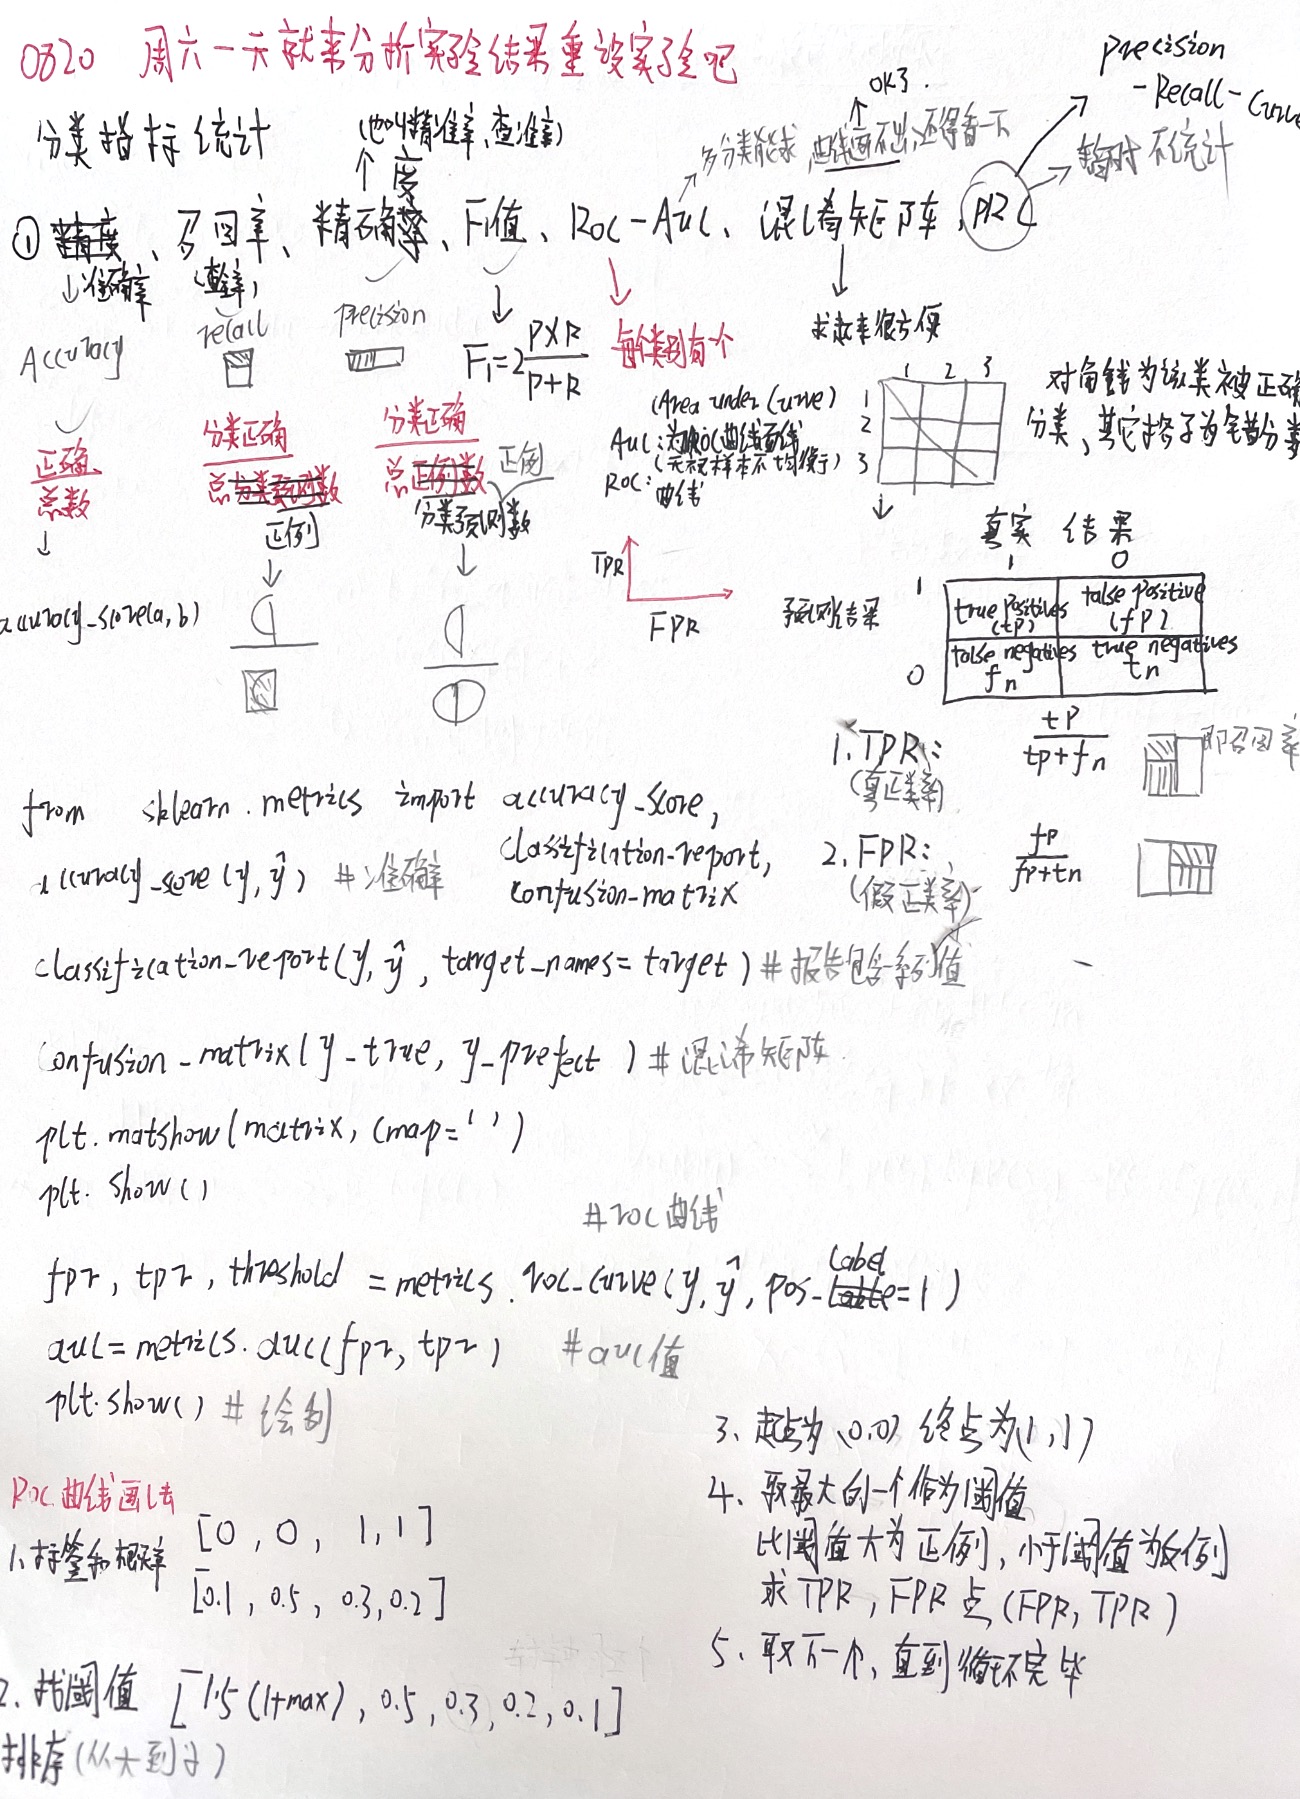 0820 周六一天就来分析实验结果重设实验吧
precision
-Recall-Curve
OK了.
分类指标统计
(也叫精准率、查准率)
多分类能求,曲线画不出,还得看一下
暂时不统计
度
① 精度、召回率、精确率、F1值、Roc-Auc、混淆矩阵,PRC
准确率
(查全率)
Accuracy
recall
precision
F₁=2 P×R / P+R
每个类别有个
求起来很方便
正确 / 总数
分类正确 / 总分类预测数
正例
分类正确 / 总正例数
正例
分类预测数
(Area under Curve)
AUC:为ROC曲线面线
(无视样本不均衡)
ROC:曲线
1 2 3
1
2
3
对角线为该类被正确
分类,其它格子为错分类
accuracy_score(a,b)
TPR
FPR
真实结果
1 0
预测结果
1 true positives (tp) false positive (fp)
0 false negatives fn true negatives tn
1. TPR: tp / tp+fn 即召回率
(真正类率)
2. FPR: fp / fp+tn
(假正类率)
from sklearn.metrics import accuracy_score,
classification-report,
confusion-matrix
accuracy_score(y,ŷ) #准确率
classification-report(y,ŷ, target_names=target) #报告包含一系列值
confusion-matrix(y-true, y-prefect) #混淆矩阵
plt.matshow(matrix, cmap='')
plt.show()
#roc曲线
fpr, tpr, threshold = metrics.roc-curve(y,ŷ, pos-label=1)
auc=metrics.auc(fpr, tpr) #auc值
plt.show() #绘制
Roc曲线画法
1、标签和概率 [0, 0, 1, 1]
[0.1, 0.5, 0.3, 0.2]
2. 找阈值 [1.5(1+max), 0.5, 0.3, 0.2, 0.1]
排序(从大到小)
3、起点为(0,0) 终点为(1,1)
4、取最大的一个作为阈值
比阈值大为正例,小于阈值为反例
求TPR, FPR 点(FPR, TPR)
5、取下一个,直到循环完毕